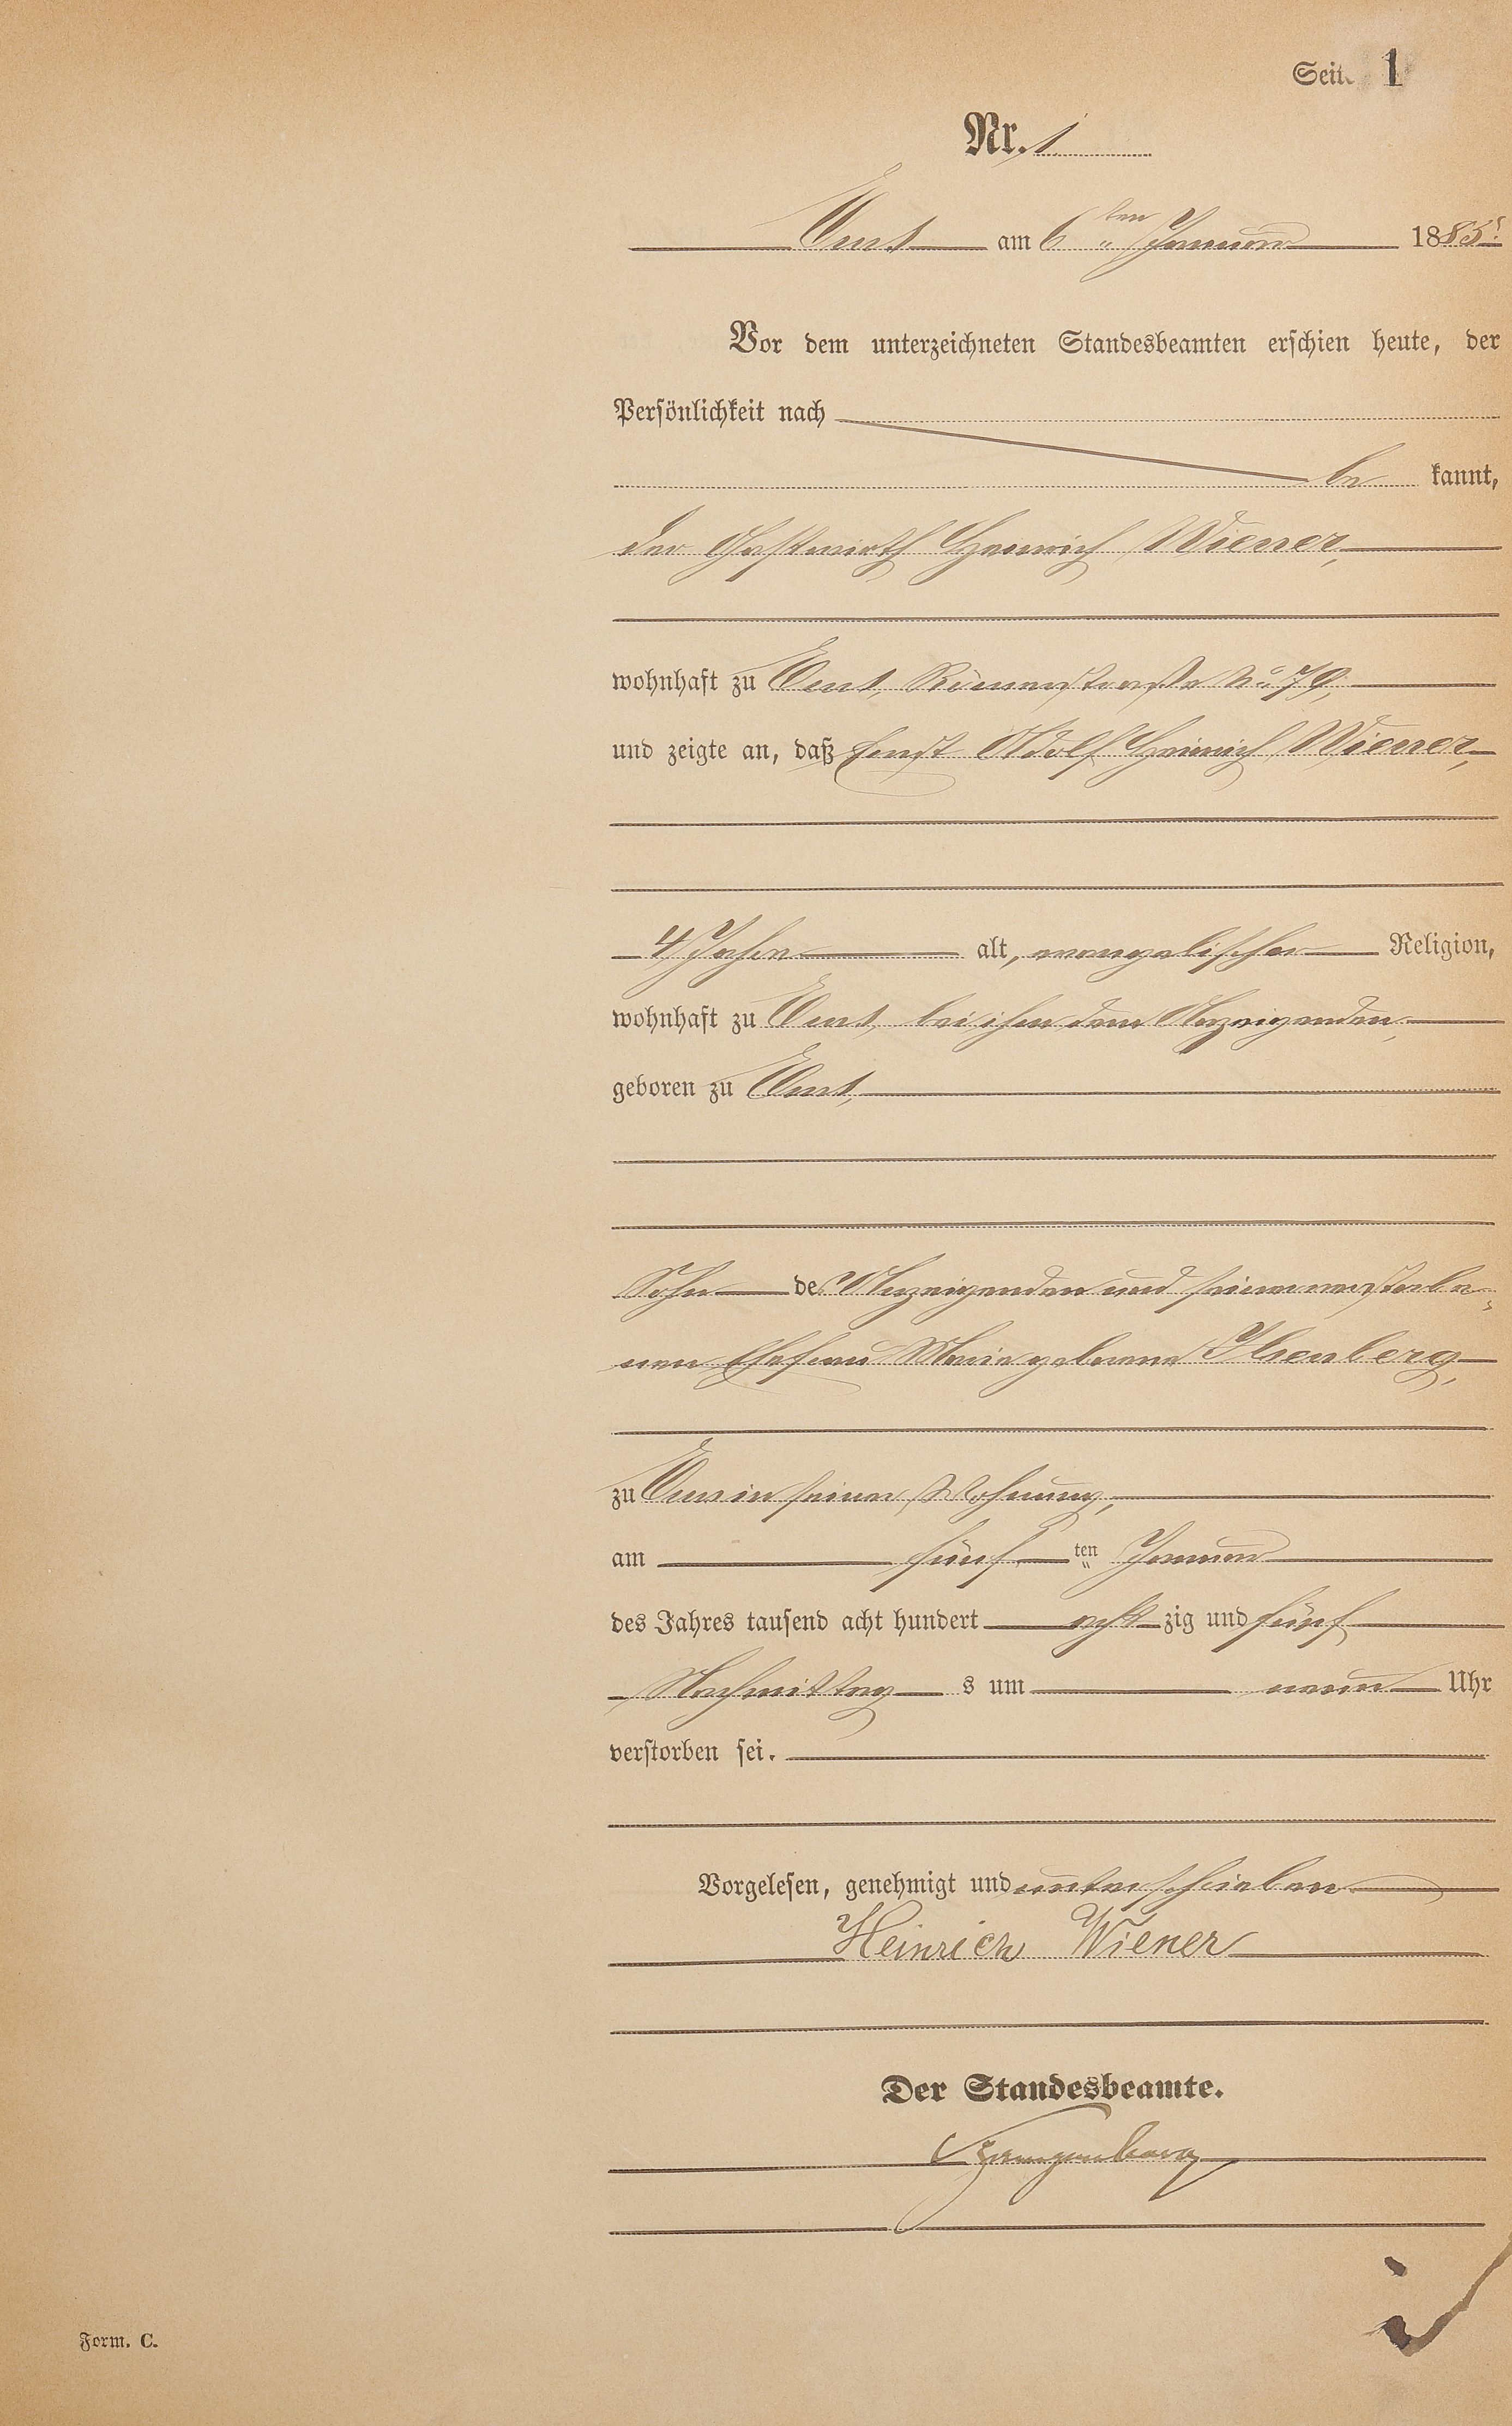 Seite 1
Nr. 1
Ems am 6ten Januar 1885.
Vor dem unterzeichneten Standesbeamten erschien heute, der
Persönlichkeit nach
be kannt,
der Gastwirth Heinrich Wiener,
wohnhaft zu Ems, Römerstraße No 79,
und zeigte an, daß Ernst Adolf Heinrich Wiener,
4 Jahre alt, evangelischer Religion,
wohnhaft zu Ems, bei ihm dem Anzeigenden,
geboren zu Ems,
Sohn des Anzeigenden und seiner verstorbe-
nen Ehefrau Marie geborene Isenberg,
zu Ems in seiner Wohnung,
am fünf ten Januar
des Jahres tausend acht hundert acht zig und fünf
Nachmittag s um neun Uhr
verstorben sei.
Vorgelesen, genehmigt und unterschrieben
Heinrich Wiener
Der Standesbeamte.
Form. C.